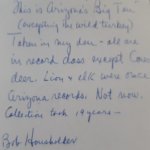 This is Arizona's Big Ten
(excepting the wild turkey)
Taken in my den - all are
in record class except Coues
deer. Lion & elk were once
Arizona records. Not now.
Collection took 19 years -
Bob Housholder